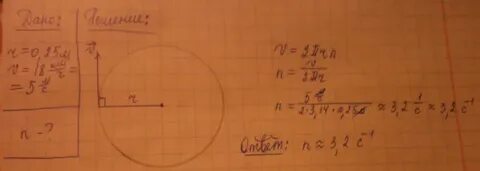 Дано:
r = 0,25м
v = 18 км/ч =
= 5 м/с
n - ?
Решение:
v
r
v = 2πrn
n = v/2πr
n = 5 м/с / 2·3,14·0,25м ≈ 3,2 1/с ≈ 3,2 с⁻¹
Ответ: n ≈ 3,2 с⁻¹